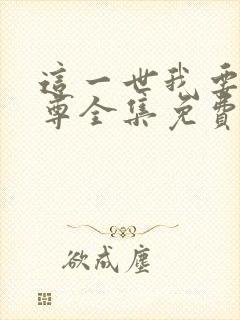 這一世我要
尊全集免費
欲成塵